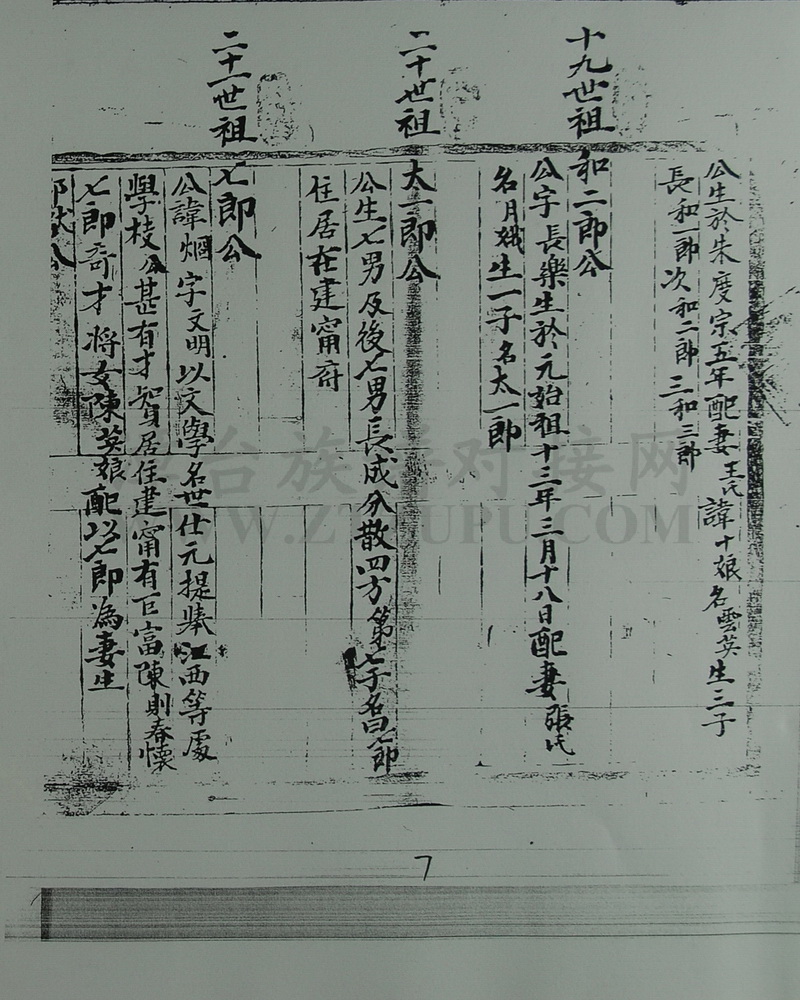 公生於朱度宗五年配妻王氏諱十娘名雲英生三子
長和一郎次和二郎三和三郎
十九世祖
和二郎公
公字長樂生於元始祖十三年三月十八日配妻張氏
名月娥生一子名太一郎
二十世祖
太一郎公
公生七男及後七男長成分散四方第七子名曰七郎
住居在建甯府
二十一世祖
七郎公
公諱烟字文明以文學名世仕元提舉江西等處
學校公甚有才智居住建甯有巨富陳則春懷
七郎奇才將女陳英娘配以七郎為妻生
台族谱对接网
7